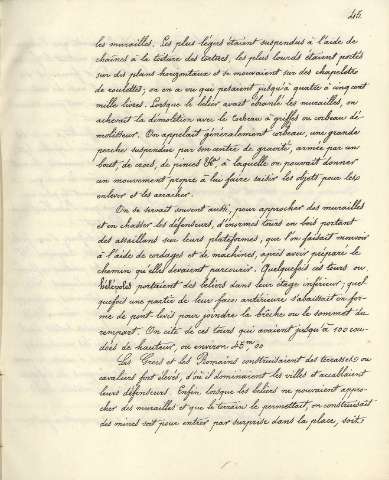 46.
les murailles. Les plus légers étaient suspendus à l'aide de
chaînes à la toiture des tortues, les plus lourds étaient portés
sur des plans horizontaux et se mouvaient sur des chapelets
de roulettes; on en a vu que pesaient jusqu'à quatre à cinq cent
mille livres. Lorsque le bélier avait ébranlé les murailles, on
achevait la démolition avec le corbeau à griffes ou corbeau dé-
molisseur. On appelait généralement corbeau, une grande
perche suspendue par son centre de gravité, armée par un
bout, de crocs, de pinces &a. à laquelle on pouvait donner
un mouvement propre à lui faire saisir les objets pour les
enlever et les arracher.
On se servait souvent aussi, pour approcher des murailles
et en chasser les défenseurs, d'énormes tours en bois portant
des assaillans sur leurs plateformes, que l'on faisait mouvoir
à l'aide de cordages et de machines, après avoir préparé le
chemin qu'elles devaient parcourir. Quelquefois ces tours ou
hélépoles portaient des béliers dans leur étage inférieur; quel
quefois une partie de leur face antérieure s'abaissait en for-
me de pont-levis pour joindre la brèche ou le sommet du
rempart. On cite de ces tours qui avaient jusqu'à 100 cou-
dées de hauteur, ou environ 45.m00
Les Grecs et les Romains construisaient des terrasses ou
cavaliers fort élevés, d'où ils dominaient les villes et accablaient
leurs défenseurs. Enfin, lorsque les béliers ne pouvaient appro-
cher des murailles et que le terrain le permettait, on construisait
des mines soit pour entrer par surprise dans la place, soit